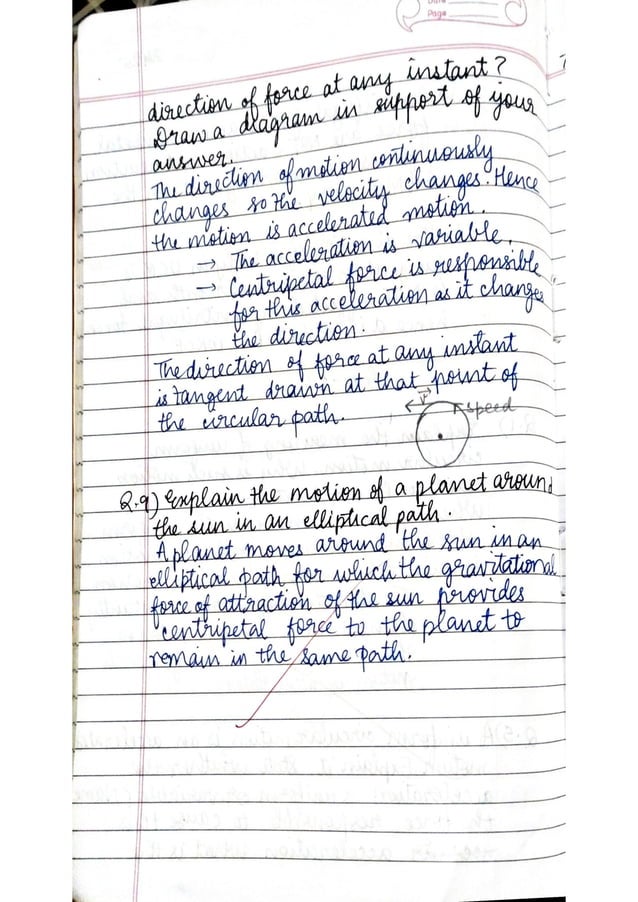 Page
direction of force at any instant?
Draw a diagram in support of your
answer.
The direction of motion continuously
changes so the velocity changes. Hence
the motion is accelerated motion.
→ The acceleration is variable.
→ Centripetal force is responsible
for this acceleration as it changes
the direction.
The direction of force at any instant
is tangent drawn at that point of
the circular path.
V
speed
Q.9) Explain the motion of a planet around
the sun in an elliptical path.
A planet moves around the sun in an
elliptical path for which the gravitational
force of attraction of the sun provides
centripetal force to the planet to
remain in the same path.